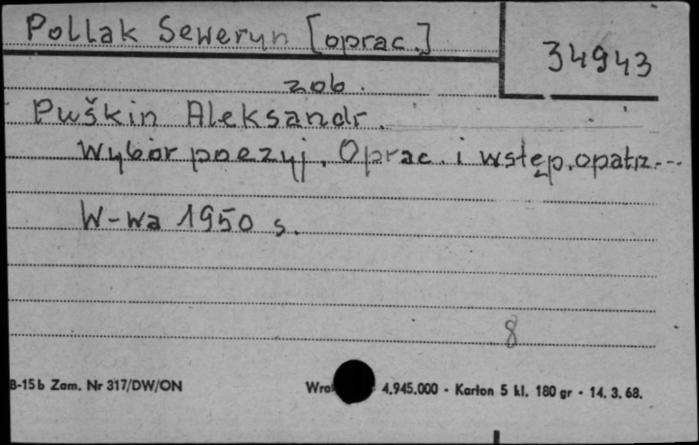 Pollak Seweryn [oprac.]
34943
zob.
Puškin Aleksandr.
Wybór poezyj. Oprac. i wstęp. opatrz.--
W-wa 1950 s.
8
B-15b Zam. Nr 317/DW/ON
4.945.000 - Karton 5 kl. 180 gr - 14. 3. 68.